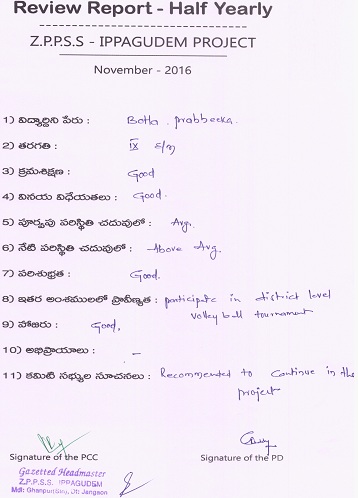 Review Report - Half Yearly
Z.P.P.S.S - IPPAGUDEM PROJECT
November - 2016
1) విద్యార్థిని పేరు : Botla . prabbeeka.
2) తరగతి : IX E/M
3) క్రమశిక్షణ : Good
4) వినయ విధేయతలు : Good.
5) పూర్వపు పరిస్థితి చదువులో : Avg.
6) నేటి పరిస్థితి చదువులో : Above Avg.
7) పరిశుభ్రత : Good.
8) ఇతర అంశములలో ప్రావీణ్యత : participate in district level
volley ball tournament
9) హాజరు : Good.
10) అభిప్రాయాలు : -
11) కమిటి సభ్యుల సూచనలు : Recommended to Continue in the
project
Signature of the PCC Signature of the PD
Gazetted Headmaster
Z.P.S.S. IPPAGUDEM
Mdl: Ghanpur(Stn), Dt: Jangaon